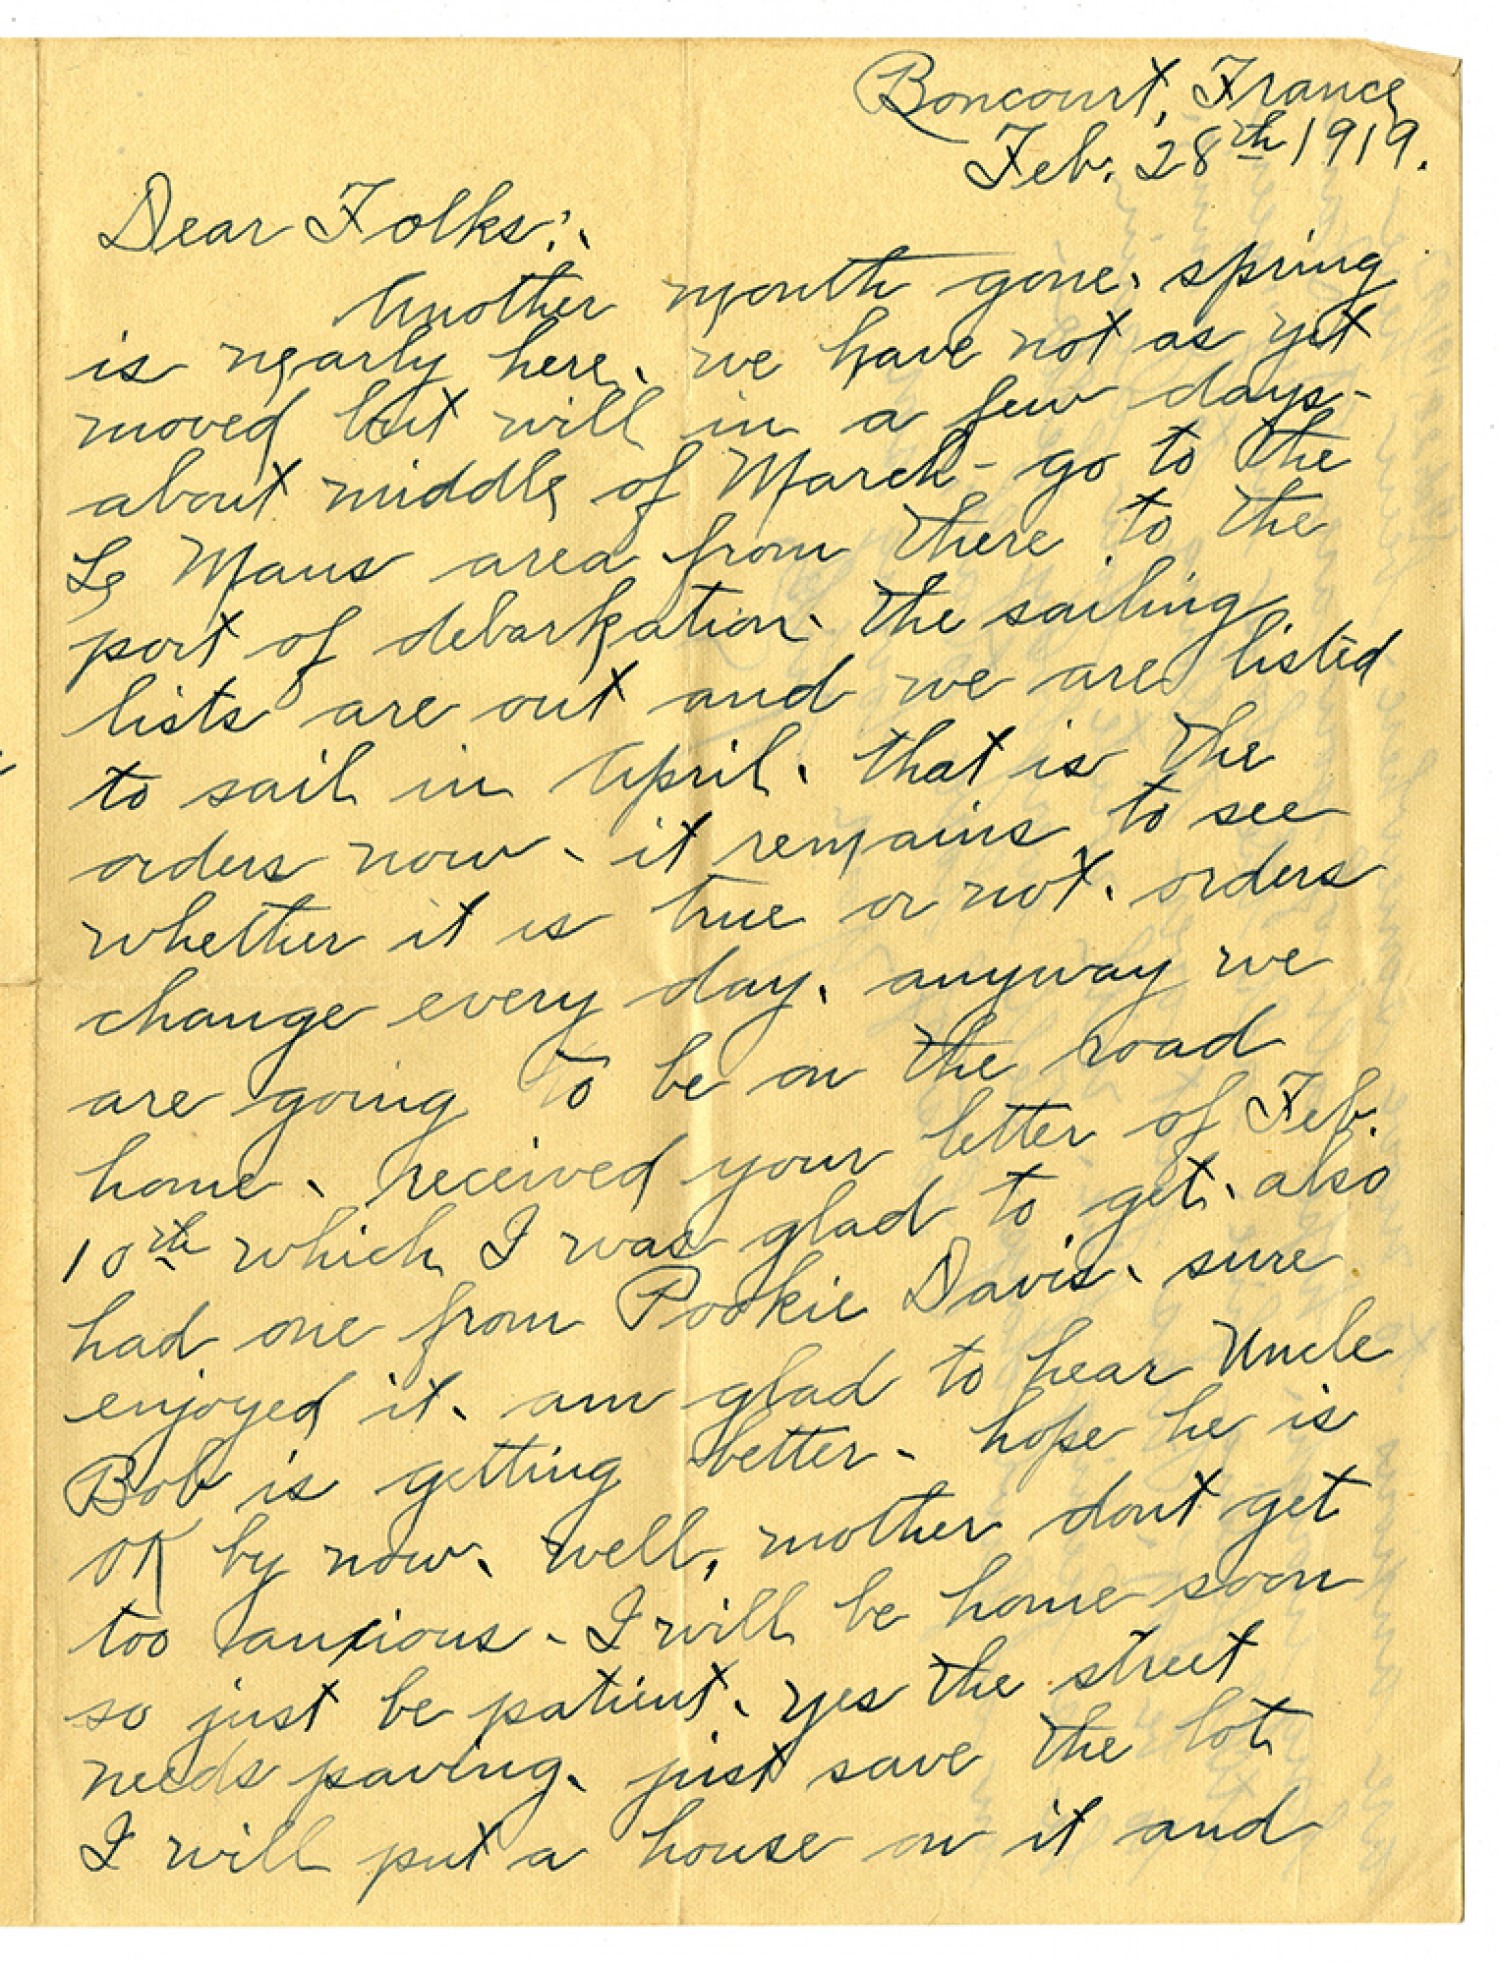 Boncourt, France
Feb. 28th 1919.
Dear Folks:.
Another month gone. spring
is nearly here. we have not as yet
moved but will in a few days-
about middle of March - go to the
Le Mans area from there to the
port of debarkation. the sailing
lists are out and we are listed
to sail in April. that is the
orders now. it remains to see
whether it is true or not. orders
change every day. anyway we
are going to be on the road
home. received your letter of Feb.
10th which I was glad to get. also
had one from Pookie Davis. sure
enjoyed it. am glad to hear Uncle
Bob is getting better. hope he is
OK by now. Well, mother dont get
too anxious. I will be home soon
so just be patient. yes the street
needs paving. just save the lot
I will put a house on it and